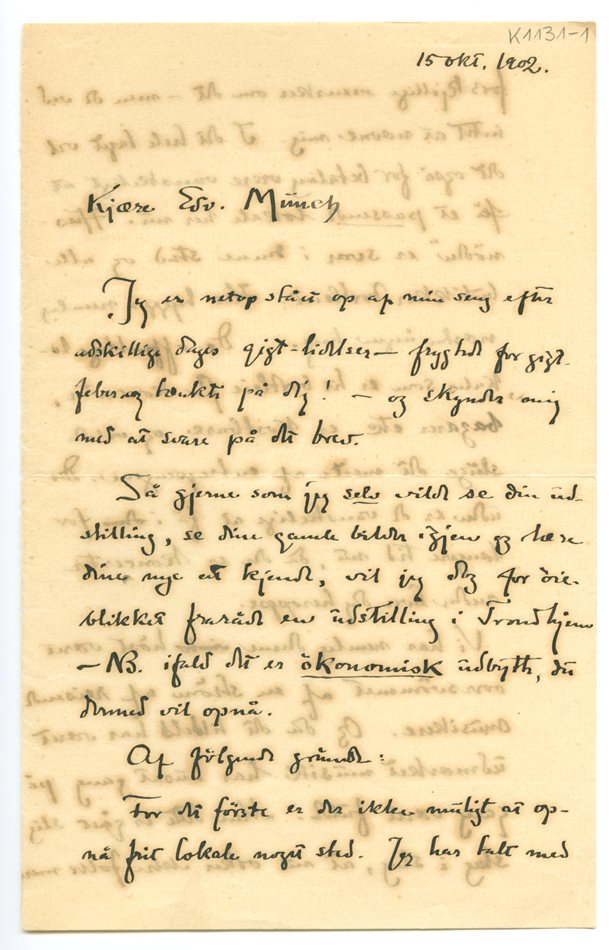 K1131-1
15 Okt. 1902.
Kjære Edv. Münch
Jeg er netop stået op af min seng efter
adskillige dages gigt-lidelser — frygted for gigt-
feber og tænkte på dig! — og skynder mig
med at svare på dit brev.
Så gjerne som jeg selv vilde se din üd-
stilling, se dine gamle billeder igjen og lære
dine nye at kjende, vil jeg dog for öie-
blikket fraråde en üdstilling i Trondhjem
— NB. ifald det er ökonomisk üdbytte, dü
dermed vil opnå.
Af fölgende gründe:
For det förste er der ikke müligt at op-
nå frit lokale noget sted. Jeg har talt med